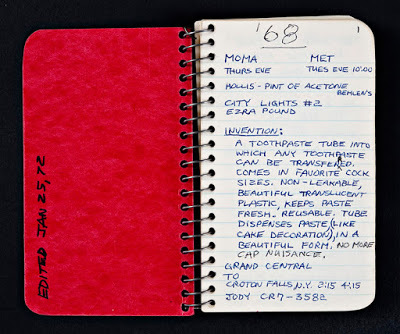 EDITED JAN 25, 72
'68
MOMA MET
THURS EVE TUES EVE 10:00
HOLLIS - PINT OF ACETONE
BEHLEN'S
CITY LIGHTS #2
EZRA POUND
INVENTION:
A TOOTHPASTE TUBE INTO
WHICH ANY TOOTHPASTE
CAN BE TRANSFERED.
COMES IN FAVORITE COCK
SIZES. NON-LEAKABLE,
BEAUTIFUL TRANSLUCENT
PLASTIC, KEEPS PASTE
FRESH. REUSABLE. TUBE
DISPENSES PASTE (LIKE
CAKE DECORATION), IN A
BEAUTIFUL FORM. NO MORE
CAP NUISANCE.
GRAND CENTRAL
TO
CROTON FALLS, N.Y. 2:15 4:15
JODY CR7-3582